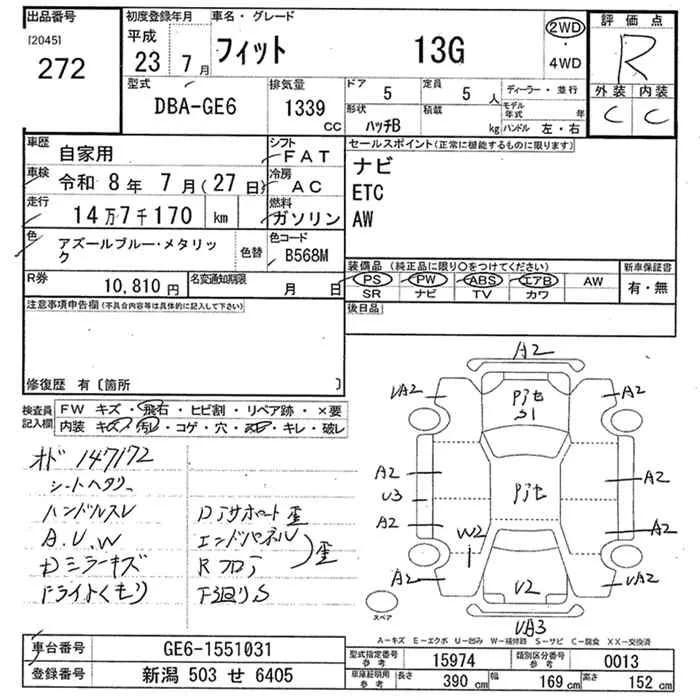 出品番号
[2045]
272
初度登録年月
平成
23 7月
車名・グレード
フィット 13G
2WD
・
4WD
評価点
R
外装 内装
C C
型式
DBA-GE6
排気量
1339
CC
ドア
5
定員
5 人
形状
ハッチB
積載
kg
ディーラー・並行
モデル年式 年
ハンドル 左・右
車歴
自家用
シフト
FAT
車検 令和 8年 7月(27日)
冷房
AC
走行
14万7千170 km
燃料
ガソリン
色
アズールブルー・メタリック
色替
色コード
B568M
R券
10,810 円
名変通知期限
月 日
セールスポイント(正常に機能するものに限ります)
ナビ
ETC
AW
装備品 (純正品に限り○をつけてください)
PS PW ABS エアB AW
SR ナビ TV カワ
新車保証書
有・無
後日品
注意事項申告欄(不具合内容等は具体的に記入して下さい)
修復歴 有〔箇所 〕
検査員記入欄
FW キズ・飛石・ヒビ割・リペア跡・×要
内装 キズ・汚レ・コゲ・穴・・キレ・破レ
オド 147172
シートヘタリ
ハンドルスレ
A.U.W
Dミラーキズ
Fライトくもり
Dサポート歪
エンドパネル
Rフロア
歪
F廻りS
A2
UA2
Pit
S1
A2
A2
U3
A2
Pit
A2
A2
W2
A2
U2
UA2
UA3
スペア
A−キズ E−エクボ U−凹み W−補修跡 S−サビ C−腐食 XX−交換済
車台番号
GE6-1551031
登録番号
新潟 503 せ 6405
型式指定番号
参考
15974
類別区分番号
参考
0013
車検証明用
参考
長さ
390 cm
幅
169 cm
高さ
152 cm